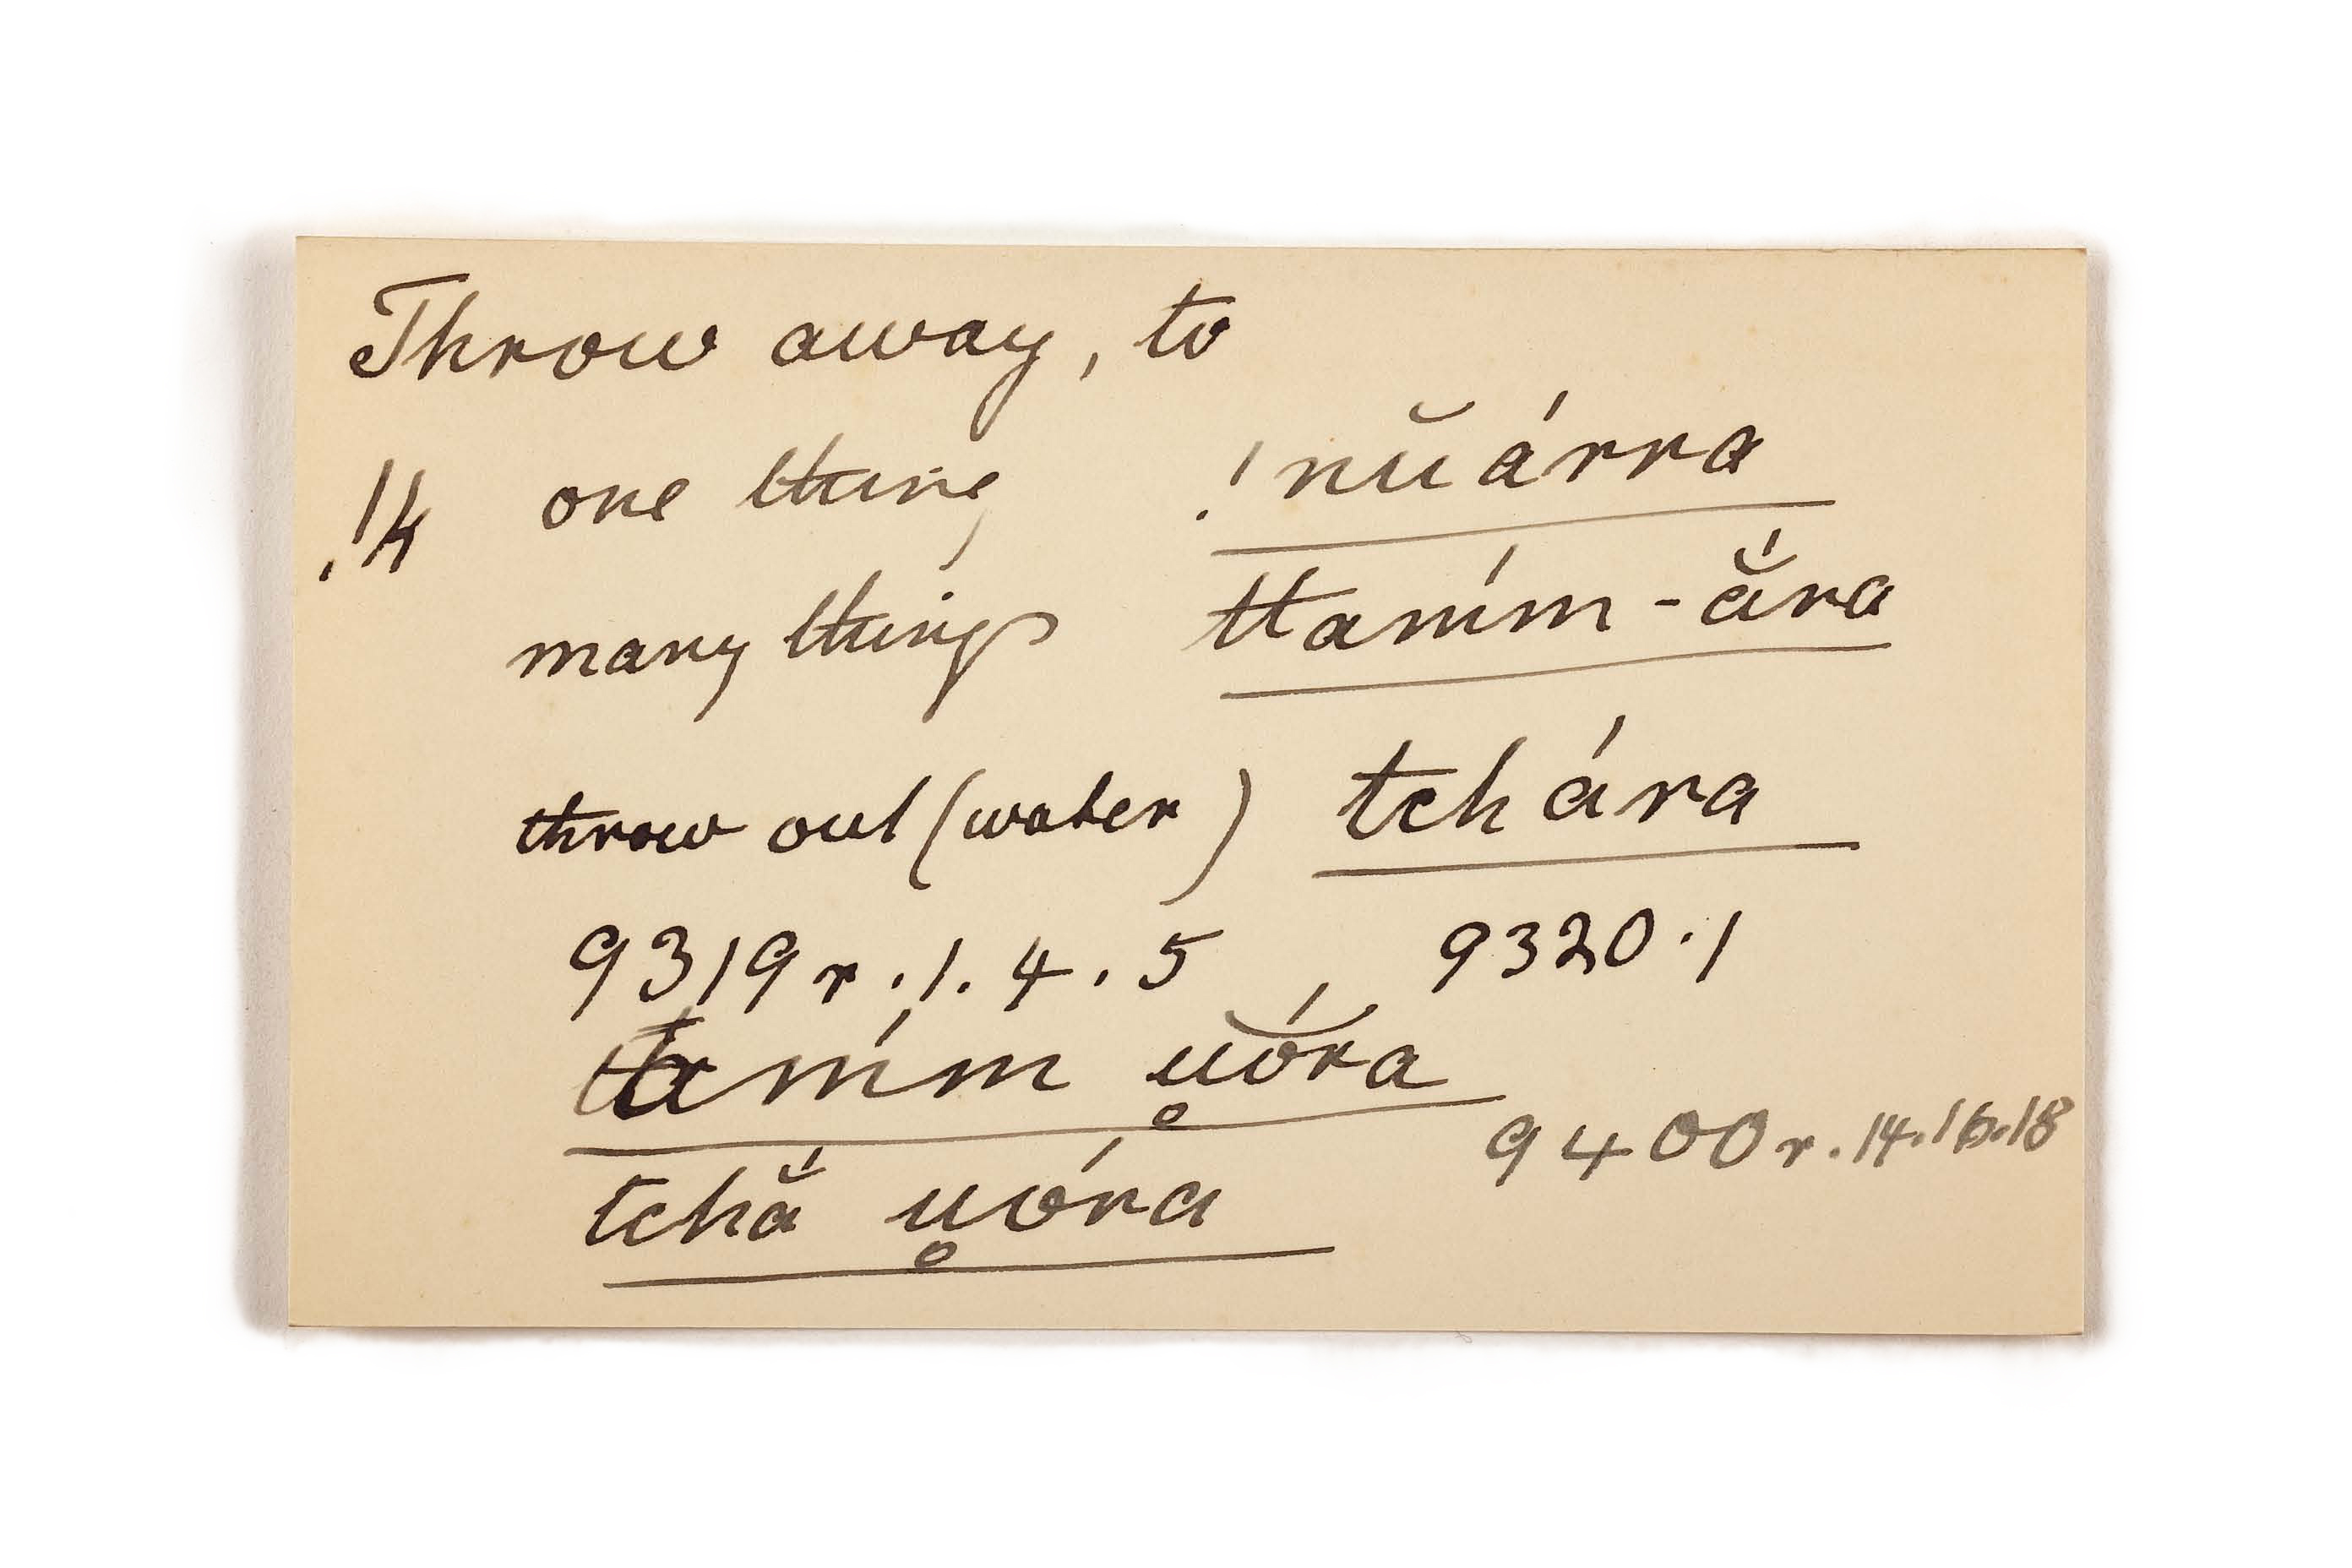 Throw away, to
!k one thing !nŭárra
many things ttamím-ā̆́ra
throw out (water) tchára
9319 r. 1. 4. 5 9320. 1
ttamím u̥ó̆ra
9400 r. 14. 16. 18
tchā̆́ u̥óra